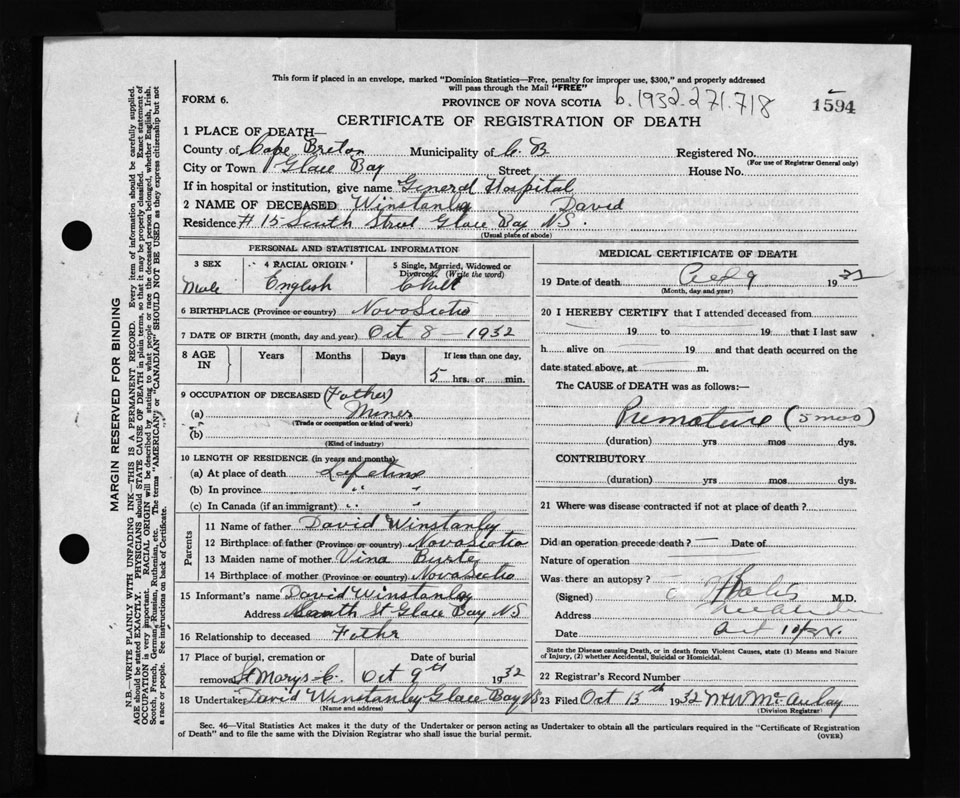 This form if placed in an envelope, marked "Dominion Statistics—Free, penalty for improper use, $300," and properly addressed
will pass through the Mail "FREE"
FORM 6.
PROVINCE OF NOVA SCOTIA
b.1932.271.718
1594
CERTIFICATE OF REGISTRATION OF DEATH
1 PLACE OF DEATH—
County of Cape Breton Municipality of C. B Registered No.
(For use of Registrar General only)
City or Town Glace Bay Street House No.
If in hospital or institution, give name General Hospital
2 NAME OF DECEASED Winstanly David
Residence # 15 South Street Glace Bay N.S.
(Usual place of abode)
PERSONAL AND STATISTICAL INFORMATION
3 SEX
Male
4 RACIAL ORIGIN
English
5 Single, Married, Widowed or
Divorced. (Write the word)
Child
6 BIRTHPLACE (Province or country) Nova Scotia
7 DATE OF BIRTH (month, day and year) Oct 8 - 1932
8 AGE IN
Years Months Days If less than one day,
5 hrs. or min.
9 OCCUPATION OF DECEASED (Father)
(a) Miner
(Trade or occupation or kind of work)
(b)
(Kind of industry)
10 LENGTH OF RESIDENCE (in years and months)
(a) At place of death Lifetime
(b) In province " "
(c) In Canada (if an immigrant) " "
Parents
11 Name of father David Winstanly
12 Birthplace of father (Province or country) Nova Scotia
13 Maiden name of mother Vina
14 Birthplace of mother (Province or country) Nova Scotia
15 Informant's name David Winstanly
Address South St Glace Bay N.S
16 Relationship to deceased Fathr
17 Place of burial, cremation or Date of burial
removal St Marys C. Oct 9th 1932
18 Undertaker David Winstanley Glace Bay NS
(Name and address)
MEDICAL CERTIFICATE OF DEATH
19 Date of death 9 19
(Month, day and year)
20 I HEREBY CERTIFY that I attended deceased from
19 to 19 that I last saw
h alive on 19 and that death occurred on the
date stated above, at m.
The CAUSE of DEATH was as follows:—
Premature (5 mos)
(duration) yrs mos dys.
CONTRIBUTORY
(duration) yrs mos dys.
21 Where was disease contracted if not at place of death?
Did an operation precede death? — Date of
Nature of operation
Was there an autopsy?
(Signed) M.D.
Address
Date Oct
State the Disease causing Death, or in death from Violent Causes, state (1) Means and Nature
of Injury, (2) whether Accidental, Suicidal or Homicidal.
22 Registrar's Record Number
23 Filed Oct 13th 1932 McAulay
(Division Registrar)
Sec. 46—Vital Statistics Act makes it the duty of the Undertaker or person acting as Undertaker to obtain all the particulars required in the "Certificate of Registration
of Death" and to file the same with the Division Registrar who shall issue the burial permit.
(OVER)
MARGIN RESERVED FOR BINDING
N.B.—WRITE PLAINLY WITH UNFADING INK—THIS IS A PERMANENT RECORD. Every item of information should be carefully supplied.
AGE should be stated EXACTLY. PHYSICIANS should STATE CAUSE OF DEATH in plain terms, so that it may be properly classified. Exact statement of
OCCUPATION is very important. RACIAL ORIGIN will be described by stating to what people or race the deceased person belonged, whether English, Irish,
Scotch, French, German, Russian, Ruthenian, etc. The terms "AMERICAN" or "CANADIAN" SHOULD NOT BE USED as they express citizenship but not
a race or people. See instructions on back of Certificate.